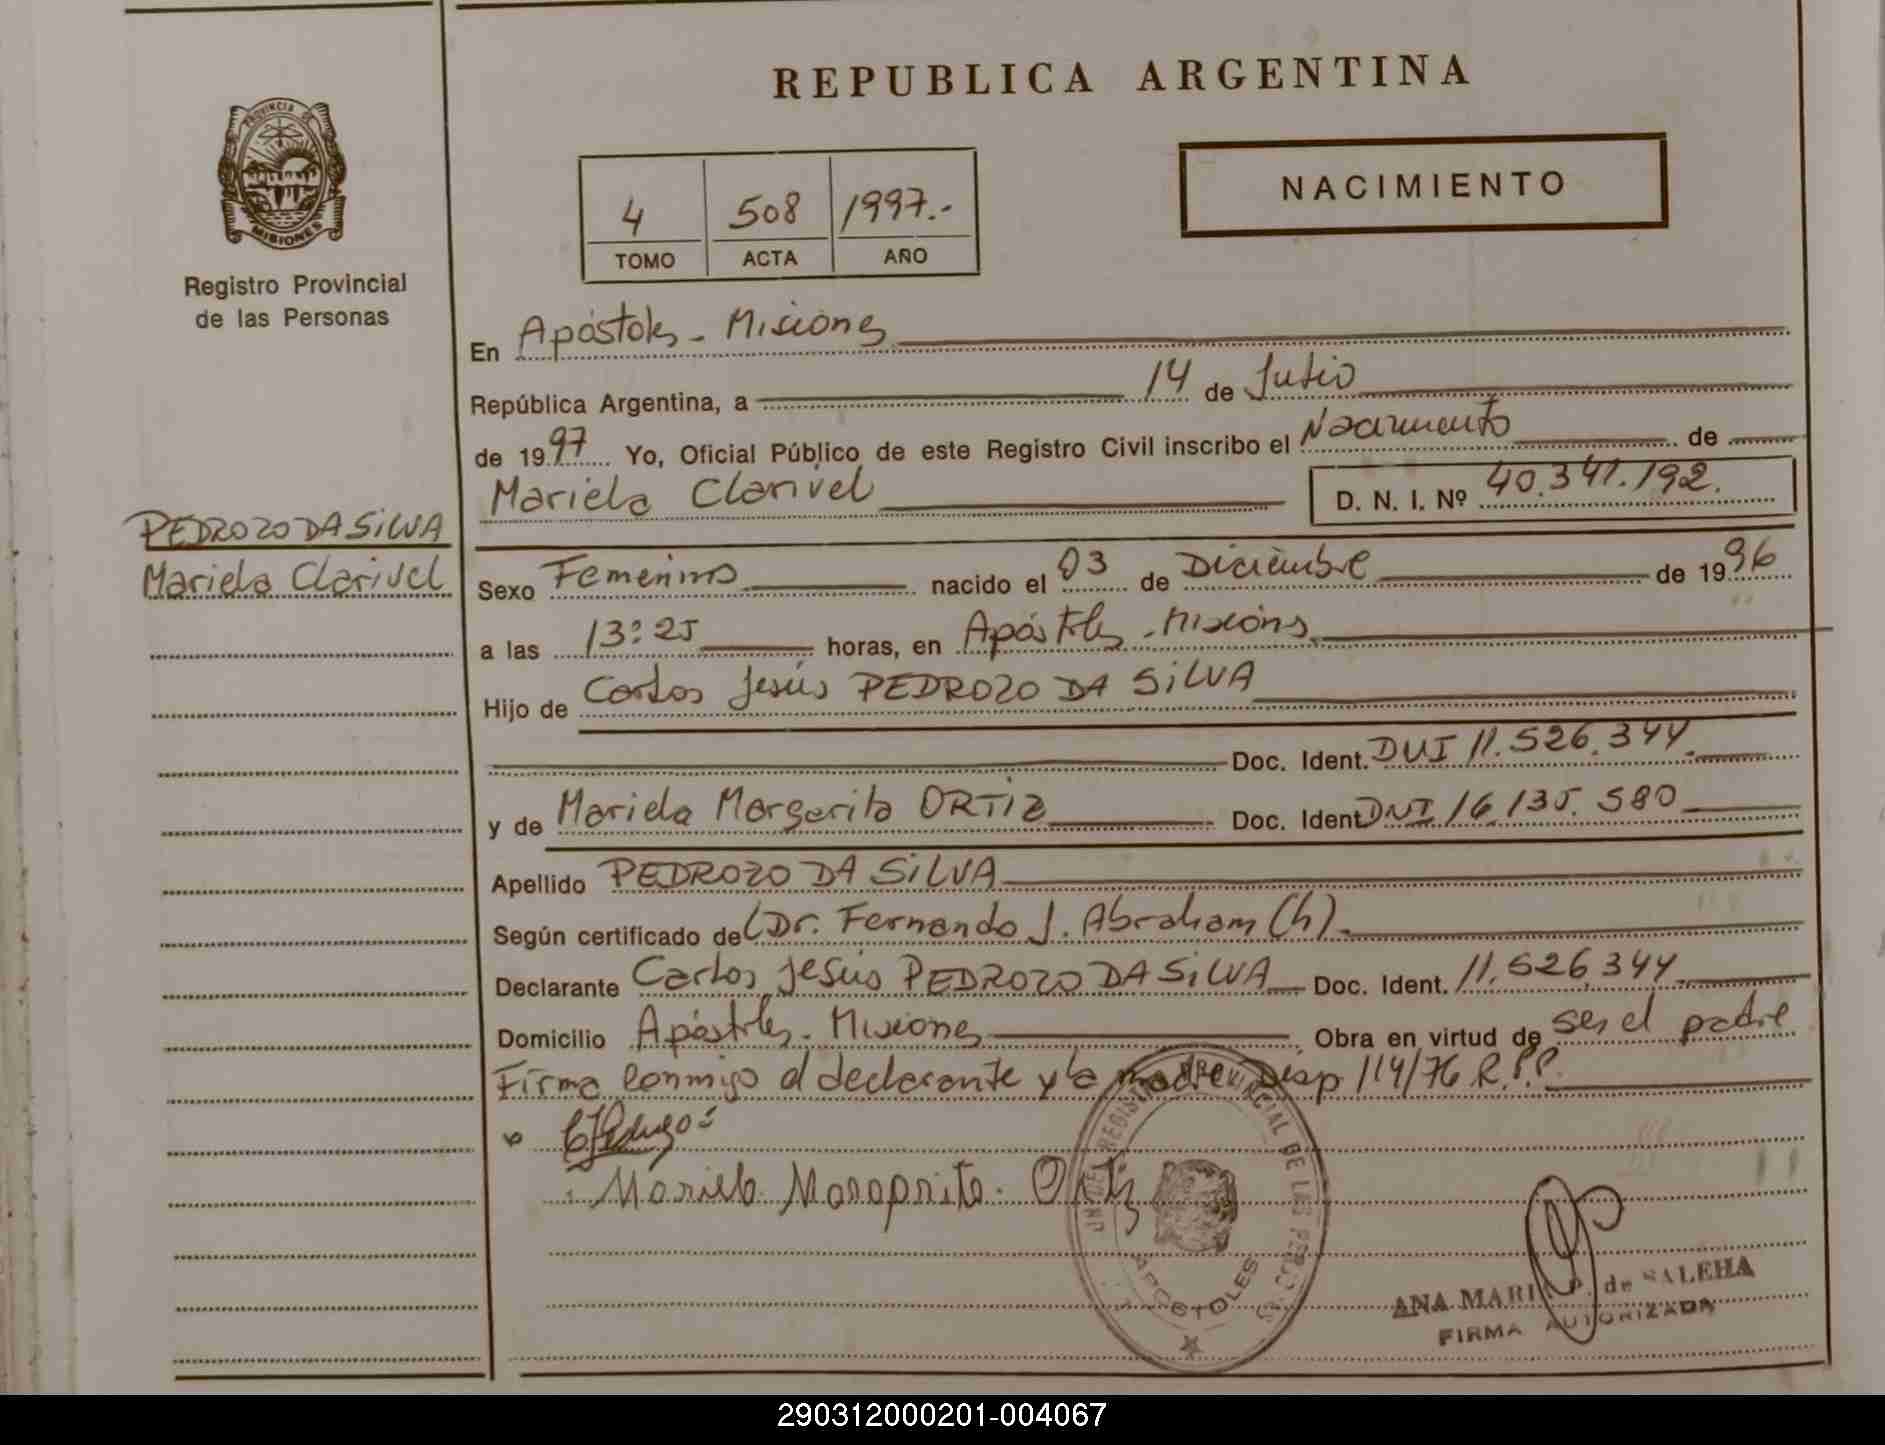 REPUBLICA ARGENTINA
PROVINCIA DE
MISIONES
Registro Provincial
de las Personas
NACIMIENTO
4 508 1997.-
TOMO ACTA AÑO
En Apóstoles - Misiones
República Argentina, a 14 de Julio
de 1997 Yo, Oficial Público de este Registro Civil inscribo el Nacimiento de
Mariela Clarivel D. N. I. Nº 40.341.192.
PEDROZO DA SILVA
Mariela Clarivel
Sexo Femenino nacido el 03 de Diciembre de 1996
a las 13:25 horas, en Apóstoles - Misiones
Hijo de Carlos Jesús PEDROZO DA SILVA
Doc. Ident. DUI 11.526.344.
y de Mariela Margarita ORTIZ Doc. Ident DNI 16.135.580
Apellido PEDROZO DA SILVA
Según certificado de (Dr. Fernando J. Abraham (h).
Declarante Carlos Jesús PEDROZO DA SILVA Doc. Ident. 11.526.344
Domicilio Apóstoles - Misiones Obra en virtud de ser el padre
Firma conmigo el declarante y la madre Disp 114/76 R.P.P.
Mariela Margarita Ortiz
REGISTRO PROVINCIAL DE LAS PERSONAS
APOSTOLES
ANA MARIA P. de SALEHA
FIRMA AUTORIZADA
290312000201-004067